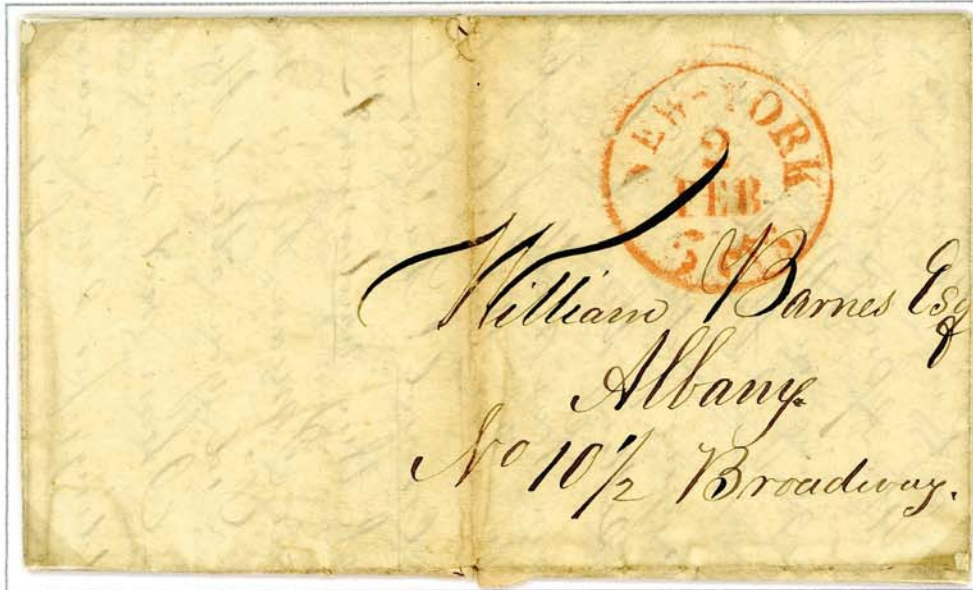 NEW-YORK
FEB
5 cts
William Barnes Esq
Albany.
No 10 1/2 Broadway.